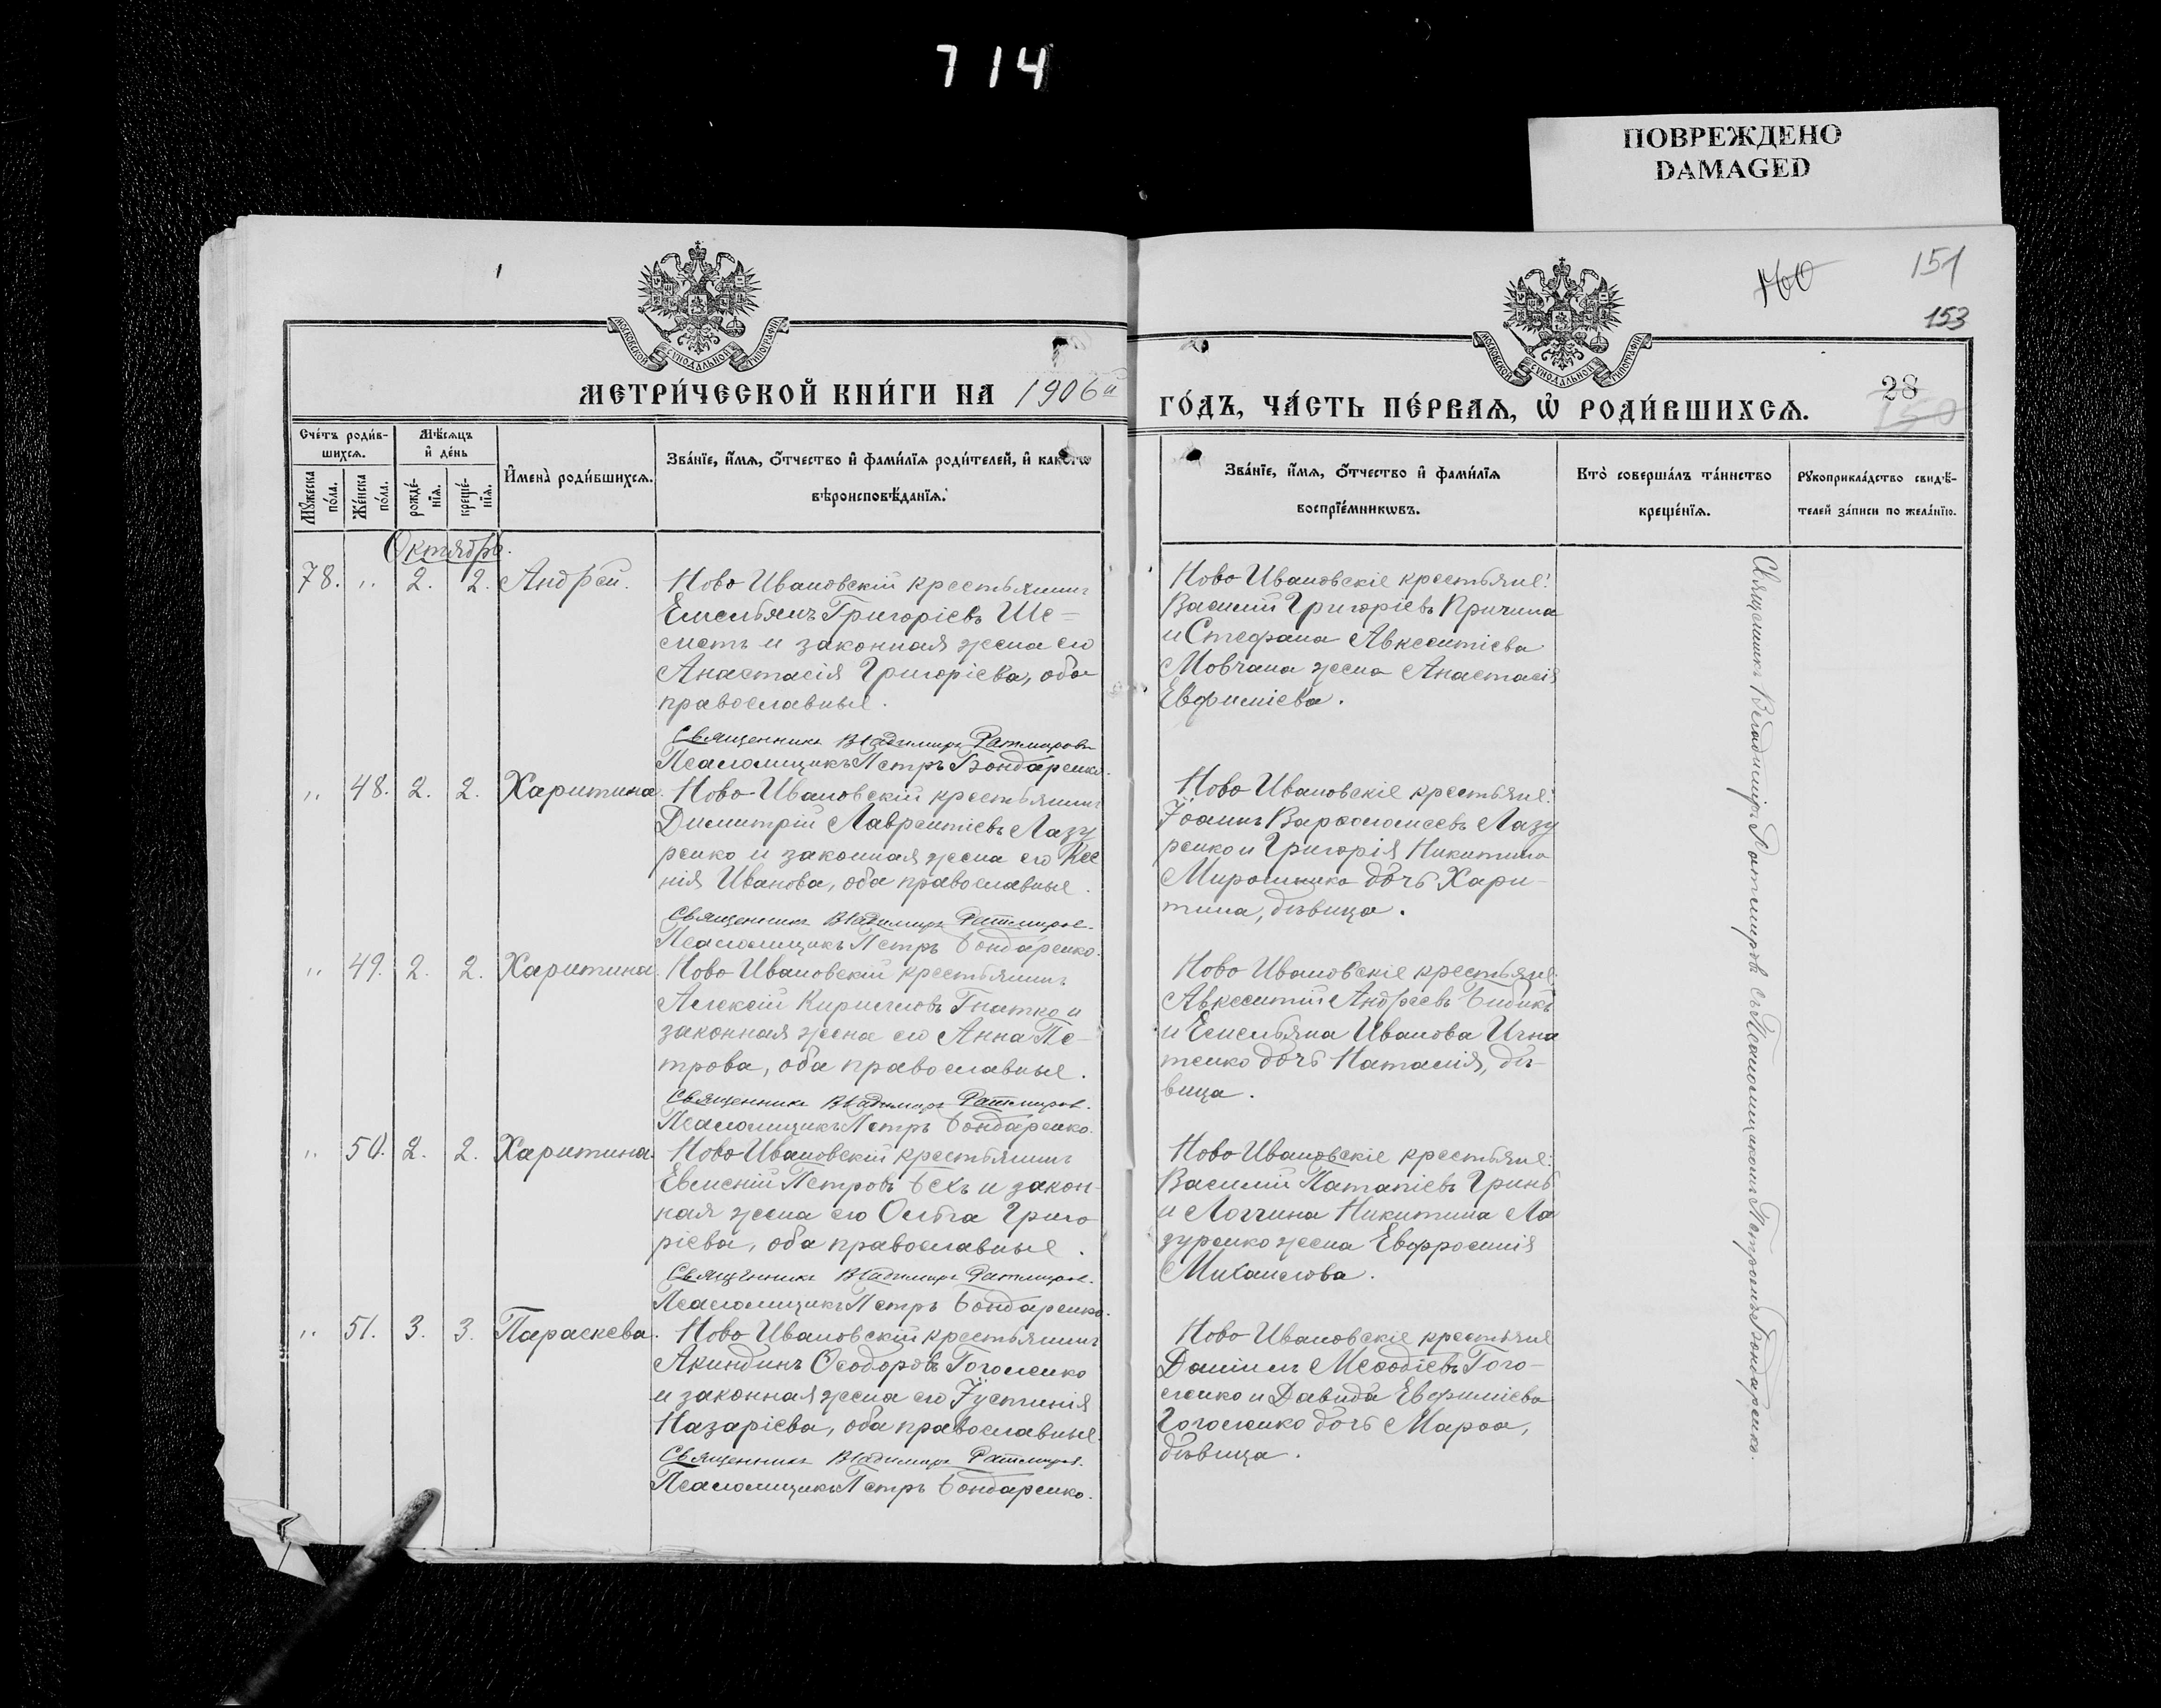 714
ПОВРЕЖДЕНО
DAMAGED
160
151
153
МОСКОВСКОЙ СѴНОДАЛЬНОЙ ТИПОГРАФІИ
МОСКОВСКОЙ СѴНОДАЛЬНОЙ ТИПОГРАФІИ
МЕТРИ́ЧЕСКОЙ КНИ́ГИ НА 1906й
ГО́ДЪ, ЧА́СТЬ ПЕ́РВАѦ, Ѡ РОДИ́ВШИХСѦ.
28
150
Сче́тъ роди́в-
шихсѧ.
Мѣ́сѧцъ
и҆ де́нь
Мꙋ́жеска
по́ла.
Же́нска
по́ла.
рожде́-
нїѧ.
креще́-
нїѧ.
И҆мена̀ роди́вшихсѧ.
Зва́нїе, и҆́мѧ, ѻ҆́тчество и҆ фами́лїѧ роди́телей, и҆ како́гѡ
вѣроисповѣ́данїѧ.
Зва́нїе, и҆́мѧ, ѻ҆́тчество и҆ фами́лїѧ
воспрїе́мникѡвъ.
Кто̀ соверша́лъ та́инство
креще́нїѧ.
Рꙋкоприкла́дство свидѣ́-
телей за́писи по жела́нїю.
Октябрь.
78. " 2. 2. Андрей.
Ново Ивановскій крестьянинъ
Емельянъ Григоріевъ Ше=
меть и законная жена его
Анастасія Григоріева, оба
православные.
Священникъ Владимиръ Ратмировъ
Псаломщикъ Петръ Бондаренко.
Ново Ивановскіе крестьяне:
Василій Григоріевъ Причина
и Стефана Авксентіева
Мовчана жена Анастасія
Евфиміева.
" 48. 2. 2. Харитина.
Ново-Ивановскій крестьянинъ
Димитрій Лаврентіевъ Лазу
ренко и законная жена его Ксе
нія Иванова, оба православные.
Священникъ Владимиръ Ратмировъ.
Псаломщикъ Петръ Бондаренко.
Ново Ивановскіе крестьяне:
Іоаннъ Варѳоломеевъ Лазу
ренко и Григорія Никитина
Мирошника дочь Хари-
тина, дѣвица.
" 49. 2. 2. Харитина.
Ново Ивановскій крестьянинъ
Алексій Кирилловъ Гнатко и
законная жена его Анна Пе-
трова, оба православные.
Священникъ Владимиръ Ратмировъ.
Псаломщикъ Петръ Бондаренко.
Ново Ивановскіе крестьяне:
Авксентій Андреевъ Бибикъ
и Емельяна Иванова Игна
тенко дочь Наталія, дѣ-
вица.
" 50. 2. 2. Харитина.
Ново Ивановскій крестьянинъ
Евменій Петровъ Бехъ и закон-
ная жена его Ольга Григо
ріева, оба православные.
Священникъ Владимиръ Ратмировъ.
Псаломщикъ Петръ Бондаренко.
Ново Ивановскіе крестьяне:
Василій Патапіевъ Гринь
и Логгина Никитина Ла
зуренко жена Евфросинія
Михаилова.
" 51. 3. 3. Параскева.
Ново Ивановскій крестьянинъ
Акиндинъ Ѳеодоровъ Гоголенко
и законная жена его Іустинія
Назаріева, оба православные.
Священникъ Владимиръ Ратмировъ.
Псаломщикъ Петръ Бондаренко.
Ново Ивановскіе крестьяне
Даніилъ Меѳодіевъ Гого-
ленко и Давида Евфиміева
Гоголенко дочь Марѳа,
дѣвица.
Священникъ Владимиръ Ратмировъ съ Псаломщикомъ Петромъ Бондаренко.